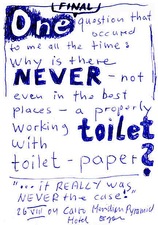 FINAL
One question that
occured
to me all the time:
Why is there
NEVER - not
even in the best
places - a properly
working toilet
with
toilet-paper?
"... it REALLY was
NEVER the case!"
26 VIII on Cairo Meridien Pyramid
Hotel